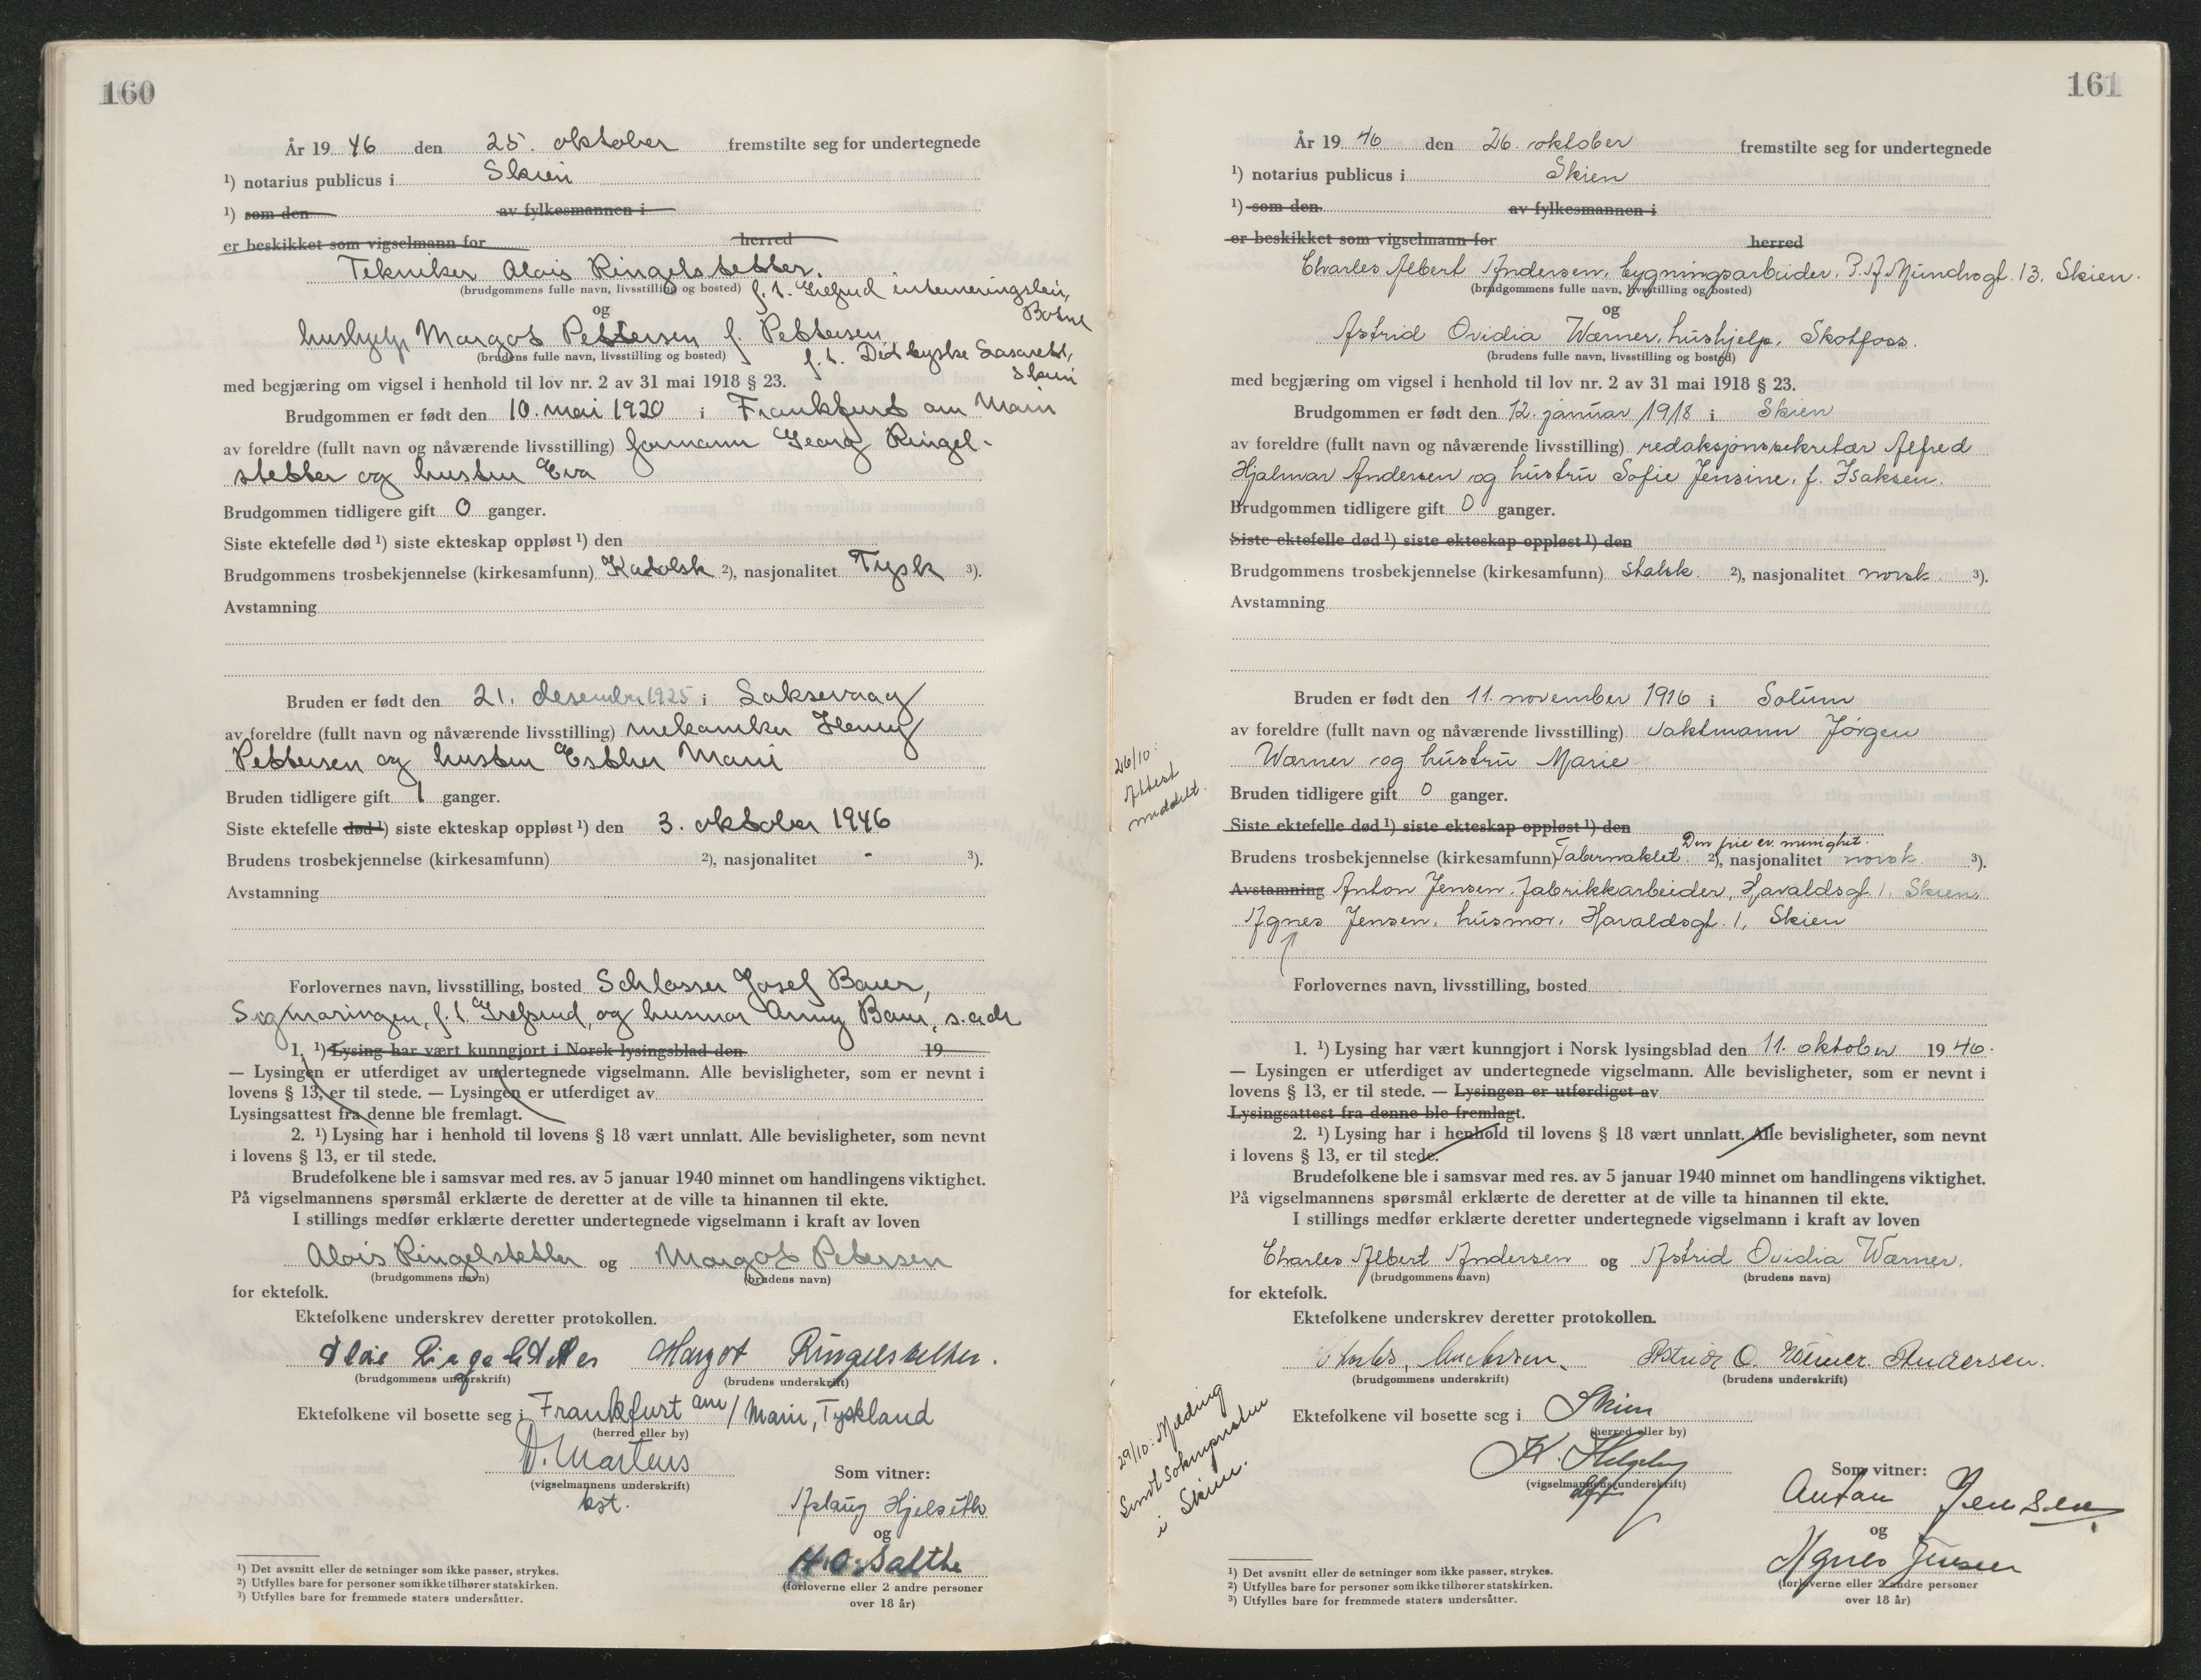 160
År 19 46 den 25. oktober fremstilte seg for undertegnede
¹) notarius publicus i Skien
¹) som den av fylkesmannen i
er beskikket som vigselmann for herred
Tekniker Alois Ringelstetter.
(brudgommens fulle navn, livsstilling og bosted) f. t. Grefsrud interneringsleir,
Botne
og
hushjelp Margot Pettersen f. Pettersen
(brudens fulle navn, livsstilling og bosted) f. t. Det tyske Lasarett,
Skien
med begjæring om vigsel i henhold til lov nr. 2 av 31 mai 1918 § 23.
Brudgommen er født den 10. mai 1920 i Frankfurt am Main
av foreldre (fullt navn og nåværende livsstilling) formann Georg Ringel-
stetter og hustru Eva
Brudgommen tidligere gift 0 ganger.
Siste ektefelle død ¹) siste ekteskap oppløst ¹) den
Brudgommens trosbekjennelse (kirkesamfunn) Katolsk ²), nasjonalitet Tysk ³).
Avstamning
Bruden er født den 21. desember 1925 i Laksevaag
av foreldre (fullt navn og nåværende livsstilling) mekaniker Henry
Pettersen og hustru Esther Marie
Bruden tidligere gift 1 ganger.
Siste ektefelle død ¹) siste ekteskap oppløst ¹) den 3. oktober 1946
Brudens trosbekjennelse (kirkesamfunn) ²), nasjonalitet - ³).
Avstamning
Forlovernes navn, livsstilling, bosted Schlosser Josef Bauer,
Sigmaringen, f. t. Grefsrud, og husmor Anny Bauer, s. adr
1. ¹) Lysing har vært kunngjort i Norsk lysingsblad den 19
— Lysingen er utferdiget av undertegnede vigselmann. Alle bevisligheter, som er nevnt i
lovens § 13, er til stede. — Lysingen er utferdiget av
Lysingsattest fra denne ble fremlagt.
2. ¹) Lysing har i henhold til lovens § 18 vært unnlatt. Alle bevisligheter, som nevnt
i lovens § 13, er til stede.
Brudefolkene ble i samsvar med res. av 5 januar 1940 minnet om handlingens viktighet.
På vigselmannens spørsmål erklærte de deretter at de ville ta hinannen til ekte.
I stillings medfør erklærte deretter undertegnede vigselmann i kraft av loven
Alois Ringelstetter og Margot Petersen
(brudgommens navn) (brudens navn)
for ektefolk.
Ektefolkene underskrev deretter protokollen.
Alois Ringelstetter Margot Ringelstetter.
(brudgommens underskrift) (brudens underskrift)
Ektefolkene vil bosette seg i Frankfurt am / Main, Tyskland
(herred eller by)
D. Martens
(vigselmannens underskrift)
kst.
Som vitner:
Aslaug Hjelseth
og
H. O. Salthe
(forloverne eller 2 andre personer
over 18 år)
¹) Det avsnitt eller de setninger som ikke passer, strykes.
²) Utfylles bare for personer som ikke tilhører statskirken.
³) Utfylles bare for fremmede staters undersåtter.
161
År 19 46 den 26. oktober fremstilte seg for undertegnede
¹) notarius publicus i Skien
¹) som den av fylkesmannen i
er beskikket som vigselmann for herred
Charles Albert Andersen, bygningsarbeider, P. A. Munchsgt. 13. Skien.
(brudgommens fulle navn, livsstilling og bosted)
og
Astrid Ovidia Wærner, hushjelp, Skotfoss.
(brudens fulle navn, livsstilling og bosted)
med begjæring om vigsel i henhold til lov nr. 2 av 31 mai 1918 § 23.
Brudgommen er født den 12. januar 1918 i Skien
av foreldre (fullt navn og nåværende livsstilling) redaksjonssekretær Alfred
Hjalmar Andersen og hustru Sofie Jensine, f. Isaksen.
Brudgommen tidligere gift 0 ganger.
Siste ektefelle død ¹) siste ekteskap oppløst ¹) den
Brudgommens trosbekjennelse (kirkesamfunn) statsk. ²), nasjonalitet norsk ³).
Avstamning
Bruden er født den 11. november 1916 i Solum
av foreldre (fullt navn og nåværende livsstilling) vaktmann Jørgen
Wærner og hustru Marie
Bruden tidligere gift 0 ganger.
Siste ektefelle død ¹) siste ekteskap oppløst ¹) den
Den frie ev. menighet.
Brudens trosbekjennelse (kirkesamfunn) Tabernaklet ²), nasjonalitet norsk ³).
Avstamning Anton Jensen, fabrikkarbeider, Haraldsgt. 1, Skien
Agnes Jensen, husmor, Haraldsgt. 1, Skien
Forlovernes navn, livsstilling, bosted
1. ¹) Lysing har vært kunngjort i Norsk lysingsblad den 11. oktober 19 46.
— Lysingen er utferdiget av undertegnede vigselmann. Alle bevisligheter, som er nevnt i
lovens § 13, er til stede. — Lysingen er utferdiget av
Lysingsattest fra denne ble fremlagt.
2. ¹) Lysing har i henhold til lovens § 18 vært unnlatt. Alle bevisligheter, som nevnt
i lovens § 13, er til stede.
Brudefolkene ble i samsvar med res. av 5 januar 1940 minnet om handlingens viktighet.
På vigselmannens spørsmål erklærte de deretter at de ville ta hinannen til ekte.
I stillings medfør erklærte deretter undertegnede vigselmann i kraft av loven
Charles Albert Andersen og Astrid Ovidia Wærner.
(brudgommens navn) (brudens navn)
for ektefolk.
Ektefolkene underskrev deretter protokollen.
Charles. Andersen. Astrid O. Wærner. Andersen.
(brudgommens underskrift) (brudens underskrift)
Ektefolkene vil bosette seg i Skien
(herred eller by)
K. Helgeby
(vigselmannens underskrift)
Som vitner:
Anton Jensen
og
Agnes Jensen
(forloverne eller 2 andre personer
over 18 år)
¹) Det avsnitt eller de setninger som ikke passer, strykes.
²) Utfylles bare for personer som ikke tilhører statskirken.
³) Utfylles bare for fremmede staters undersåtter.
26/10:
Attest
meddelt.
29/10: Melding
sendt Soknepresten
i Skien.